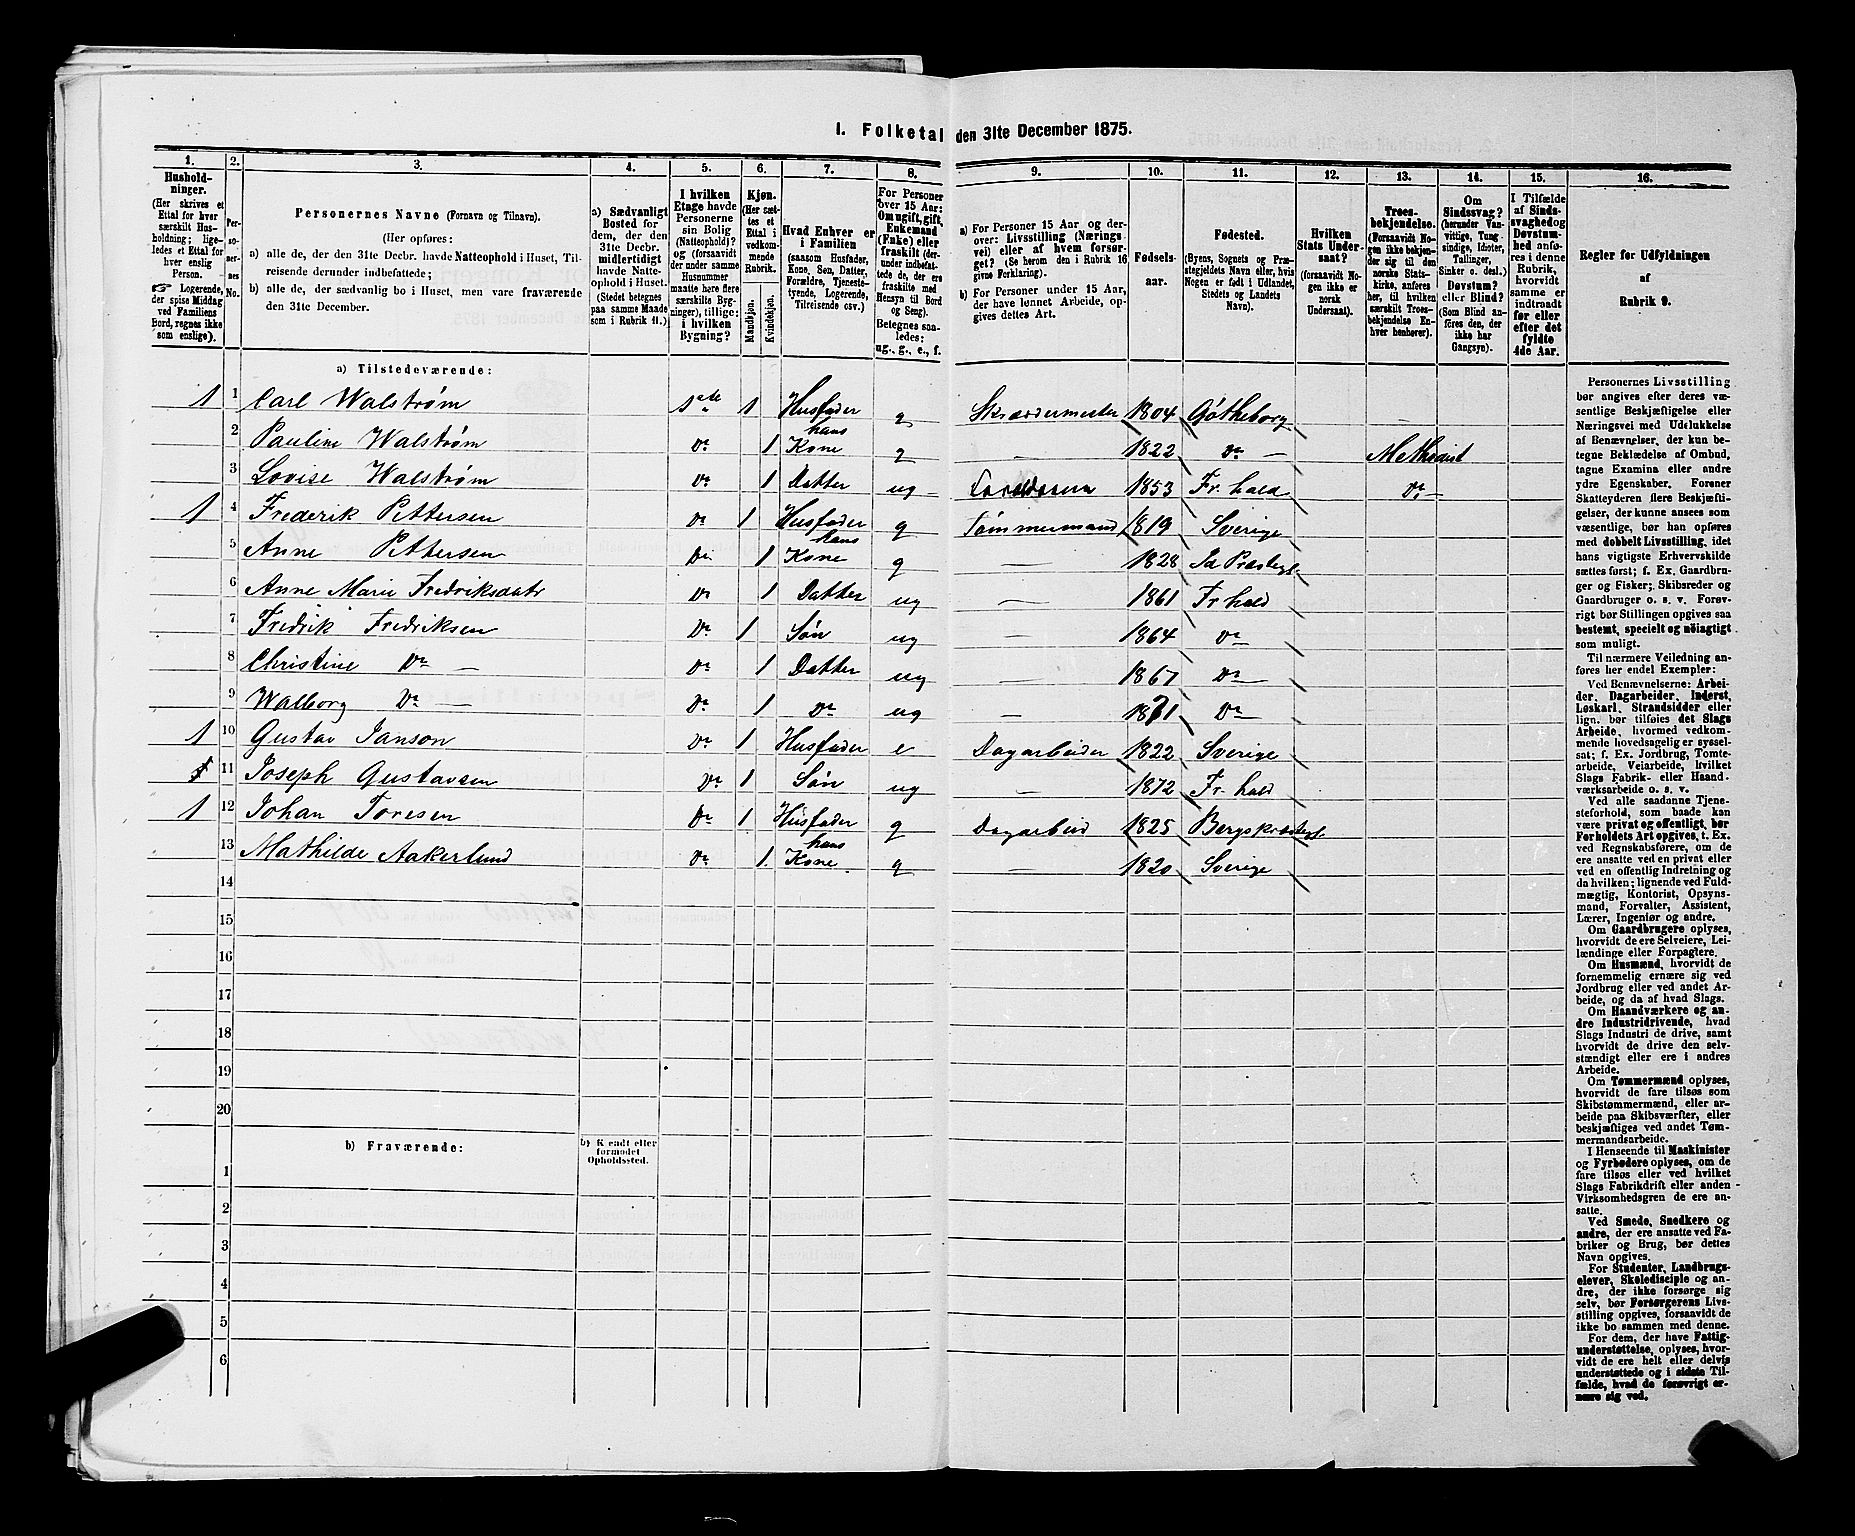 I. Folketal den 31te December 1875.
1. 2. 3. 4. 5. 6. 7. 8. 9. 10. 11. 12. 13. 14. 15. 16.
Husholdninger.
(Her skrives et
Ettal for hver
særskilt Husholdning; ligeledes et Ettal for
hver enslig
Person.
☞ Logerende,
der spise Middag
ved Familiens
Bord, regnes ikke
som enslige).
Personernes No.
Personernes Navne (Fornavn og Tilnavn).
(Her opføres:
a) alle de, der den 31te Decbr. havde Natteophold i Huset, Tilreisende derunder indbefattede;
b) alle de, der sædvanlig bo i Huset, men vare fraværende
den 31te December.
a) Sædvanligt
Bosted for
dem, der den
31te Decbr.
midlertidigt
havde Natteophold i Huset.
(Stedet betegnes
paa samme Maade
som i Rubrik 11.)
I hvilken
Etage havde
Personerne
sin Bolig
(Natteophold)?
og (forsaavidt
der under samme
Husnummer
maatte høre flere
særskilte Bygninger), tillige:
i hvilken
Bygning?
Kjøn.
(Her sættes et
Ettal i
vedkommende
Rubrik.
Mandkjøn.
Kvindekjøn.
Hvad Enhver er
i Familien
(saasom Husfader,
Kone, Søn, Datter,
Forældre, Tjenestetyende, Logerende,
Tilreisende osv.)
For Personer
over 15 Aar:
Om ugift, gift,
Enkemand
(Enke) eller
fraskilt (derunder indbefattede de, der ere
fraskilte med
Hensyn til Bord
og Seng).
Betegnes saaledes:
ug., g., e., f.
a) For Personer 15 Aar og derover: Livsstilling (Næringsvei) eller af hvem forsørget? (Se herom den i Rubrik 16
givne Forklaring).
b) For Personer under 15 Aar,
der have lønnet Arbeide, opgives dettes Art.
Fødselsaar.
Fødested.
(Byens, Sognets og Præstegjeldets Navn eller, hvis
Nogen er født i Udlandet,
Stedets og Landets
Navn).
Hvilken
Stats Undersaat?
(forsaavidt Nogen ikke er
norsk
Undersaat).
Troesbekjendelse.
(Forsaavidt Nogen ikke bekjender sig til den
norske Statskirke, anføres
her, til hvilken
særskilt Troesbekjendelse Enhver henhører).
Om
Sindssvag?
(herunder Vanvittige, Tungsindige, Idioter,
Tallinger,
Sinker o. desl.)
Døvstum?
eller Blind?
(Som Blind anføres den, der
ikke har
Gangsyn).
I Tilfælde
af Sindssvaghed og
Døvstumhed anføres i denne
Rubrik,
hvorvidt
samme er
indtraadt
før eller
efter det
fyldte
4de Aar.
Regler for Udfyldningen
af
Rubrik 9.
a) Tilstedeværende:
1 1 Carl Walstrøm 1ste 1 Husfader g Skræddermester 1804 Gøtheborg
2 Pauline Walstrøm Do 1 hans Kone g — 1822 Do — Methodist
3 Lovise Walstrøm Do 1 Datter ug 1853 Fr. hald Do —
1 4 Frederik Pettersen Do 1 Husfader g Tømmermand 1819 Sverige
5 Anne Pettersen Do 1 hans Kone g — 1828 Id Præstegl
6 Anne Marie Fredriksdatr Do 1 Datter ug — 1861 Fr hald
7 Fredrik Fredriksen Do 1 Søn ug — 1864 Do
8 Christine Do — Do 1 Datter ug — 1867 Do
9 Walborg Do — Do 1 Do ug — 1871 Do
1 10 Gustav Janson Do 1 Husfader e Dagarbeider 1822 Sverige
11 Joseph Gustavsen Do 1 Søn ug — 1872 Fr. hald
1 12 Johan Toresen Do 1 Husfader g Dagarbeid 1825 Bergs Præstegl.
13 Mathilde Aakerlund Do 1 hans Kone g — 1820 Sverige
14
15
16
17
18
19
20
b) Fraværende:
b) Kjendt eller
formodet
Opholdssted.
1
2
3
4
5
6
Personernes Livsstilling
bør angives efter deres væsentlige Beskjæftigelse eller
Næringsvei med Udelukkelse
af Benævnelser, der kun betegne Beklædelse af Ombud,
tagne Examina eller andre
ydre Egenskaber. Forener
Skatteyderen flere Beskjæftigelser, der kunne ansees som
væsentlige, bør han opføres
med dobbelt Livsstilling, idet
hans vigtigste Erhvervskilde
sættes først; f. Ex. Gaardbruger og Fisker; Skibsreder og
Gaardbruger o. s. v. Forøvrigt bør Stillingen opgives saa
bestemt, specielt og nøiagtigt
som muligt.
Til nærmere Veiledning anføres her endel Exempler:
Ved Benævnelserne: Arbeider, Dagarbeider, Inderst,
Løskarl, Strandsidder eller
lign. bør tilføies det Slags
Arbeide, hvormed vedkommende hovedsagelig er sysselsat; f. Ex. Jordbrug, Tomtearbeide, Veiarbeide, hvilket
Slags Fabrik- eller Haandværksarbeide o. s. v.
Ved alle saadanne Tjenesteforhold, som baade kan
være privat og offentligt, bør
Forholdets Art opgives, t. Ex.
ved Regnskabsførere, om de
ere ansatte ved en privat eller
ved en offentlig Indretning og
da hvilken; lignende ved Fuldmægtig, Kontorist, Opsynsmand, Forvalter, Assistent,
Lærer, Ingeniør og andre.
Om Gaardbrugere oplyses,
hvorvidt de ere Selveiere, Leilændinge eller Forpagtere.
Om Husmænd, hvorvidt de
fornemmelig ernære sig ved
Jordbrug eller ved andet Arbeide, og da af hvad Slags.
Om Haandværkere og andre Industridrivende, hvad
Slags Industri de drive, samt
hvorvidt de drive den selvstændigt eller ere i andres
Arbeide.
Om Tømmermænd oplyses,
hvorvidt de fare tilsøs som
Skibstømmermænd, eller arbeide paa Skibsværfter, eller
beskjæftiges ved andet Tømmermandsarbeide.
I Henseende til Maskinister
og Fyrbødere oplyses, om de
fare tilsøs eller ved hvilket
Slags Fabrikdrift eller anden
Virksomhedsgren de ere ansatte.
Ved Smede, Snedkere og
andre, der ere ansatte ved Fabriker og Brug, bør dettes
Navn opgives.
For Studenter, Landbrugselever, Skoledisciple og andre, der ikke forsørge sig
selv, bør Forsørgerens Livsstilling opgives, forsaavidt de
ikke bo sammen med denne.
For dem, der have Fattigunderstøttelse, oplyses, hvorvidt de ere helt eller delvis
understøttede og i sidste Tilfælde, hvad de forøvrigt ernære sig ved.